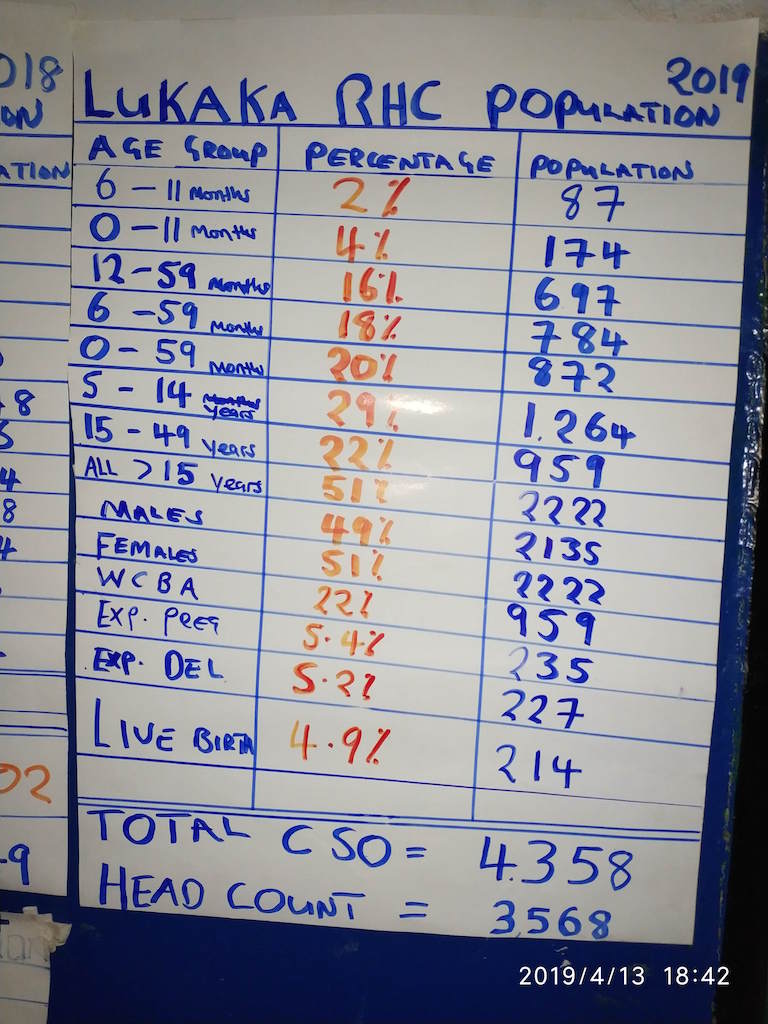 018
ON
ATION
8
4
8
4
02
9
2019
LUKAKA RHC POPULATION
AGE GROUP PERCENTAGE POPULATION
6 - 11 Months 2% 87
0 - 11 Months 4% 174
12 - 59 Months 16% 697
6 - 59 Months 18% 784
0 - 59 Months 20% 872
5 - 14 Years 29% 1.264
15 - 49 Years 22% 959
ALL > 15 Years 51% 2222
MALES 49% 2135
FEMALES 51% 2222
WCBA 22% 959
EXP. PREG 5.4% 235
EXP. DEL 5.2% 227
LIVE BIRTH 4.9% 214
TOTAL CSO = 4.358
HEAD COUNT = 3568
2019/4/13 18:42